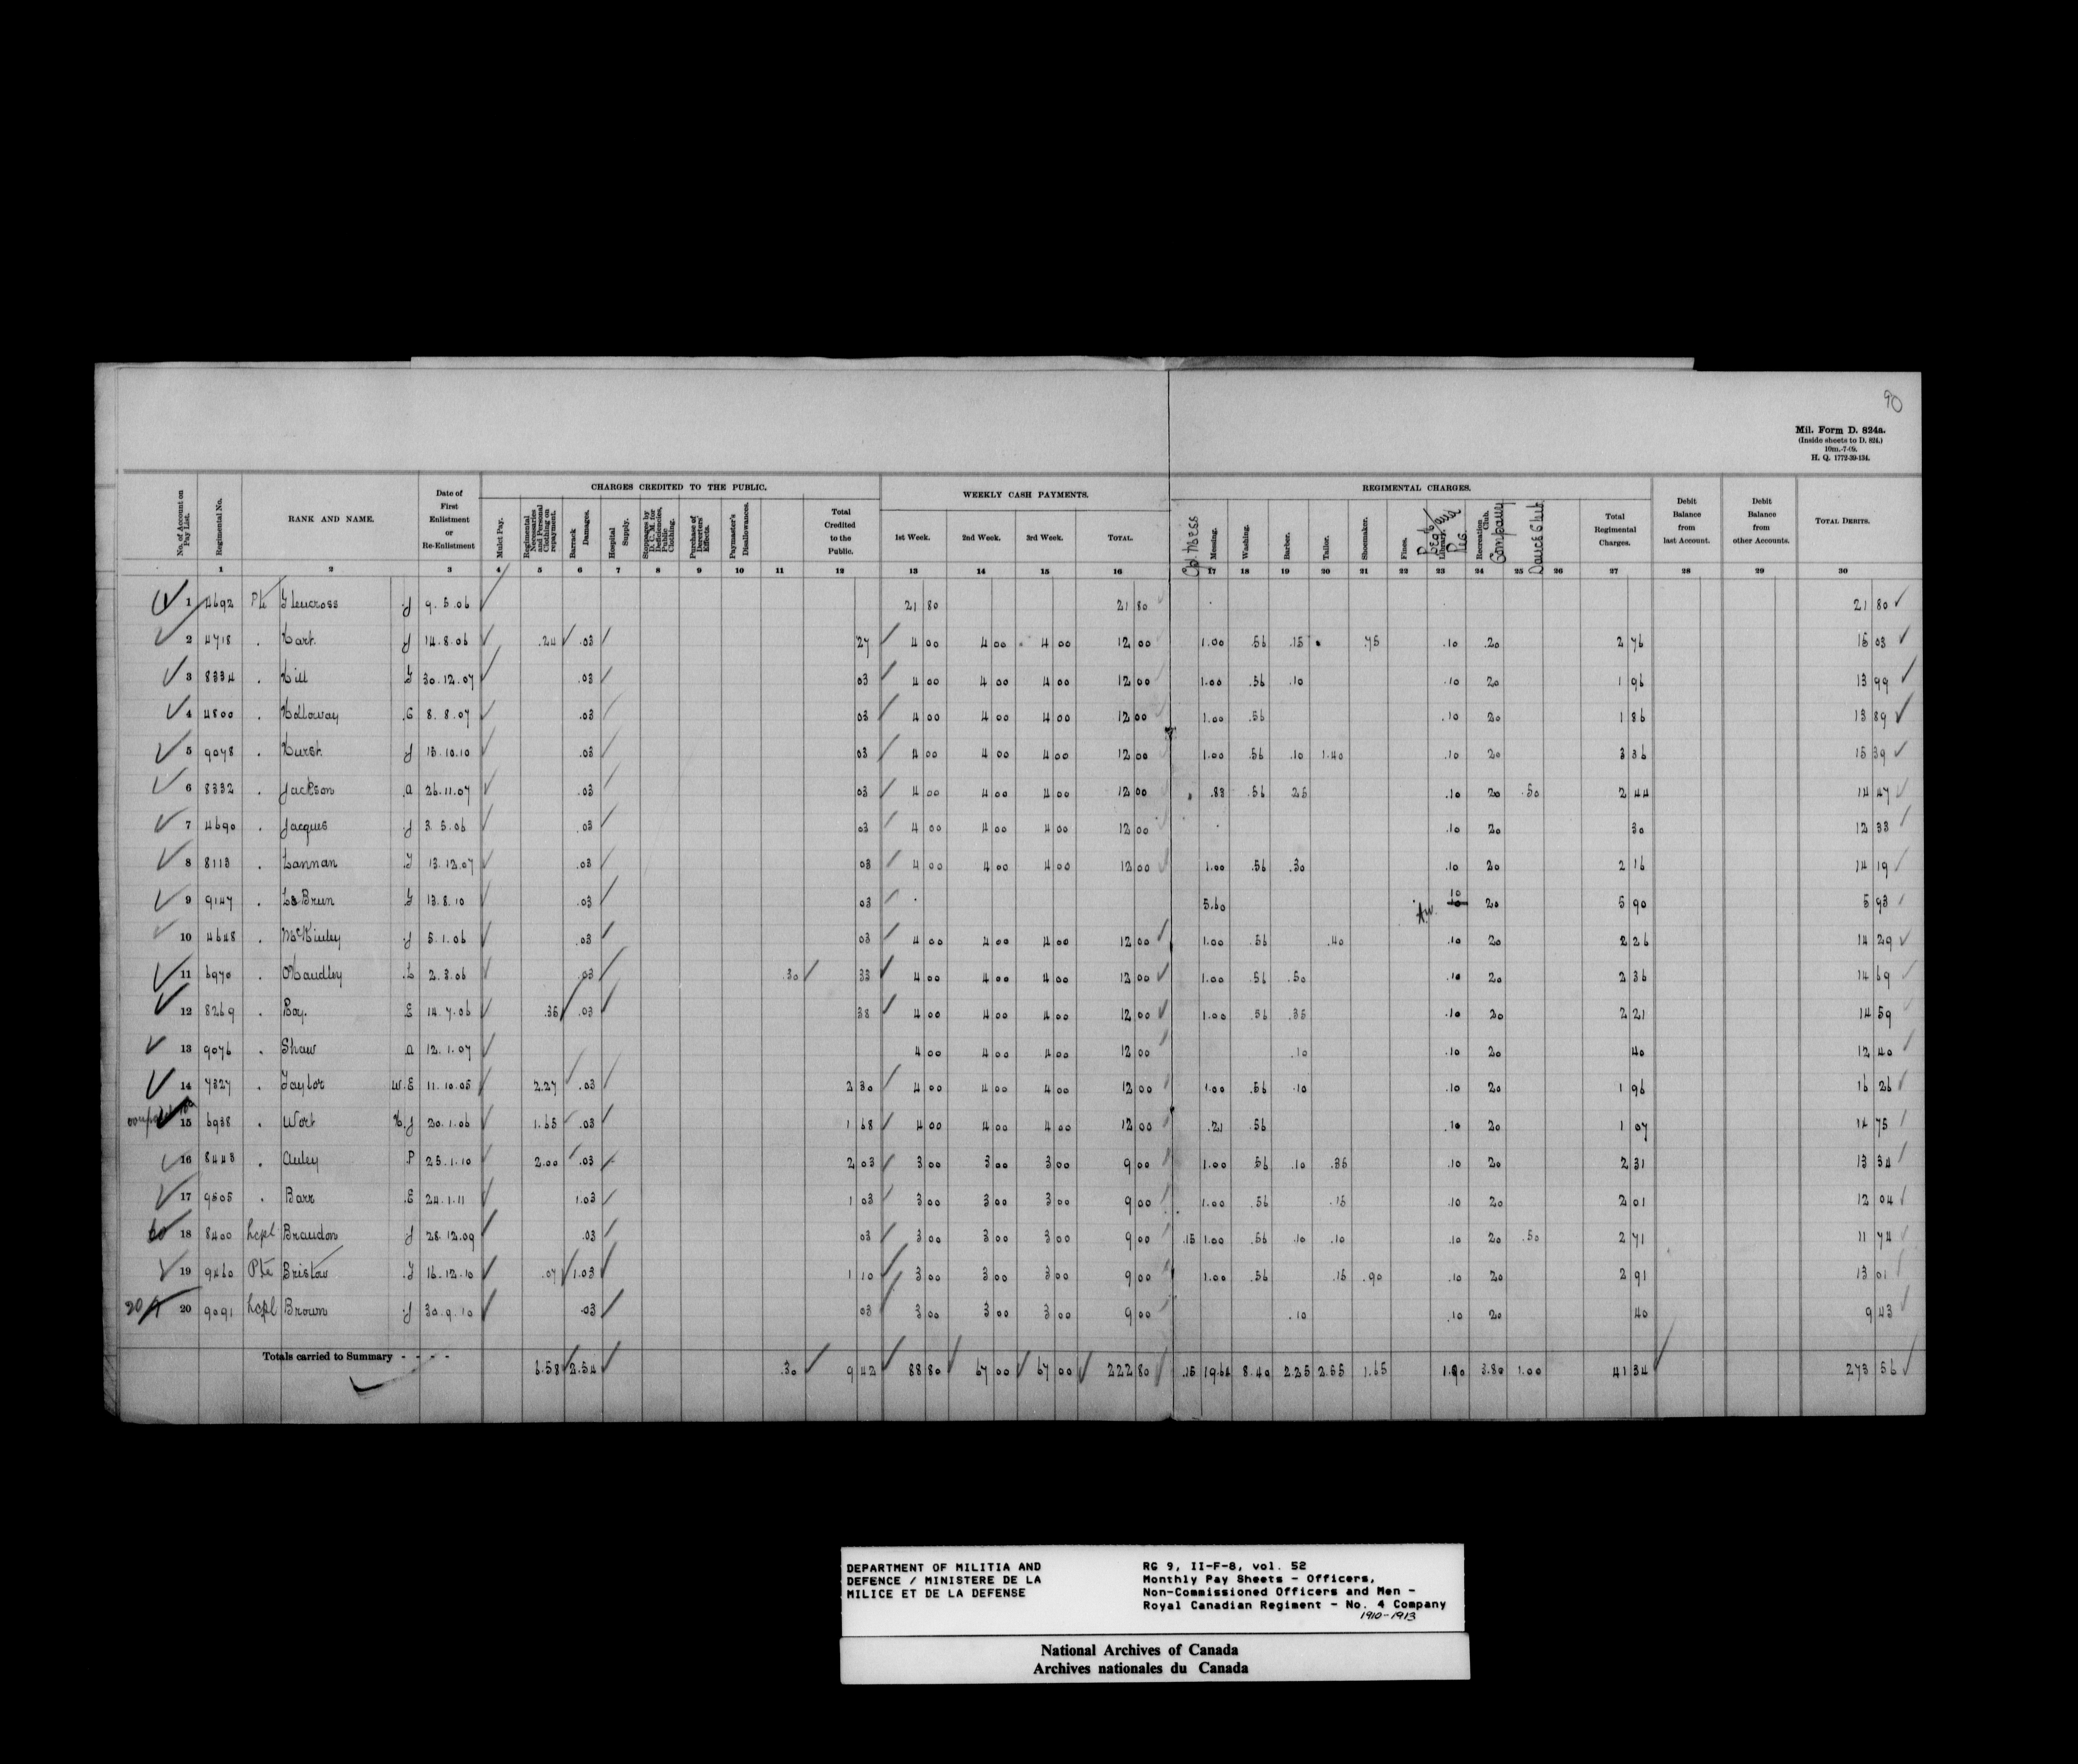 90
Mil. Form D. 824a.
(Inside sheets to D. 824.)
10m.-7-09.
H. Q. 1772-39-134.
CHARGES CREDITED TO THE PUBLIC. WEEKLY CASH PAYMENTS. REGIMENTAL CHARGES.
No. of Account on Pay List. Regimental No. RANK AND NAME. Date of First Enlistment or Re-Enlistment Mulct Pay. Regimental Necessaries and Personal Clothing on repayment. Barrack Damages. Hospital Supply. Stoppages by D. C. M. for Deficiencies, Public Clothing. Purchase of Deserters' Effects. Paymaster's Disallowances. Total Credited to the Public. 1st Week. 2nd Week. 3rd Week. TOTAL. Cpl. Mess Messing. Washing. Barber. Tailor. Shoemaker. Fines. Library. Recreation Club. Company Dance Club Total Regimental Charges. Debit Balance from last Account. Debit Balance from other Accounts. TOTAL DEBITS.
1 2 3 4 5 6 7 8 9 10 11 12 13 14 15 16 17 18 19 20 21 22 23 24 25 26 27 28 29 30
1 4692 Pte Glencross J 9.5.06 21 80 21 80 21 80
2 4718 . Hart J 14.8.06 .24 .03 27 4 00 4 00 4 00 12 00 1.00 .56 .15 .75 .10 .20 2 76 15 03
3 8334 . Hill G 30.12.07 .03 03 4 00 4 00 4 00 12 00 1.00 .56 .10 .10 20 1 96 13 99
4 4800 . Holloway .C 8.8.07 .03 03 4 00 4 00 4 00 12 00 1.00 .56 .10 20 1 86 13 89
5 9078 . Hurst J 15.10.10 .03 03 4 00 4 00 4 00 12 00 1.00 .56 .10 1.40 .10 20 3 36 15 39
6 8332 . Jackson .A 26.11.07 .03 03 4 00 4 00 4 00 12 00 .83 .56 25 .10 20 .50 2 44 14 47
7 4690 . Jacques .J 3.5.06 .03 03 4 00 4 00 4 00 12 00 .10 20 30 12 33
8 8113 . Lannan .J 13.12.07 .03 03 4 00 4 00 4 00 12 00 1.00 .56 .30 .10 20 2 16 14 19
9 9147 . LeBrun G 13.8.10 .03 03 5.60 10 20 5 90 5 93
10 4648 . McKinley .J 5.1.06 .03 03 4 00 4 00 4 00 12 00 1.00 .56 .40 .10 20 2 26 14 29
11 6970 . OHandley .L 2.3.06 .03 .30 33 4 00 4 00 4 00 12 00 1.00 .56 .50 .10 20 2 36 14 69
12 8269 . Roy. E 14.7.06 .35 .03 38 4 00 4 00 4 00 12 00 1.00 .56 .35 .10 20 2 21 14 59
13 9076 . Shaw A 12.1.07 4 00 4 00 4 00 12 00 .10 .10 20 40 12 40
14 7327 . Taylor W.E 11.10.05 2.27 .03 2 30 4 00 4 00 4 00 12 00 1.00 .56 .10 .10 20 1 96 16 26
15 6938 . Wort H.J 20.1.06 1.65 .03 1 68 4 00 4 00 4 00 12 00 .21 .56 .10 20 1 07 14 75
16 8443 . Auley P 25.1.10 2.00 .03 2 03 3 00 3 00 3 00 9 00 1.00 .56 .10 .35 .10 20 2 31 13 34
17 9505 . Barr .E 24.1.11 1.03 1 03 3 00 3 00 3 00 9 00 1.00 .56 .15 .10 20 2 01 12 04
18 8400 Lcpl Brandon J 28.12.09 .03 03 3 00 3 00 3 00 9 00 .15 1.00 .56 .10 .10 .10 20 .50 2 71 11 74
19 9460 Pte Bristow .J 16.12.10 .07 1.03 1 10 3 00 3 00 3 00 9 00 1.00 .56 .15 .90 .10 20 2 91 13 01
20 20 9091 Lcpl Brown .J 30.9.10 .03 03 3 00 3 00 3 00 9 00 .10 .10 20 40 9 43
Totals carried to Summary - - - - 6.58 2.54 .30 9 42 88 80 67 00 67 00 222 80 .15 19.64 8.40 2.25 2.55 1.65 1.90 3.80 1.00 41 34 273 56
DEPARTMENT OF MILITIA AND
DEFENCE / MINISTERE DE LA
MILICE ET DE LA DEFENSE
RG 9, II-F-8, vol. 52
Monthly Pay Sheets - Officers,
Non-Commissioned Officers and Men -
Royal Canadian Regiment - No. 4 Company
1910-1913
National Archives of Canada
Archives nationales du Canada